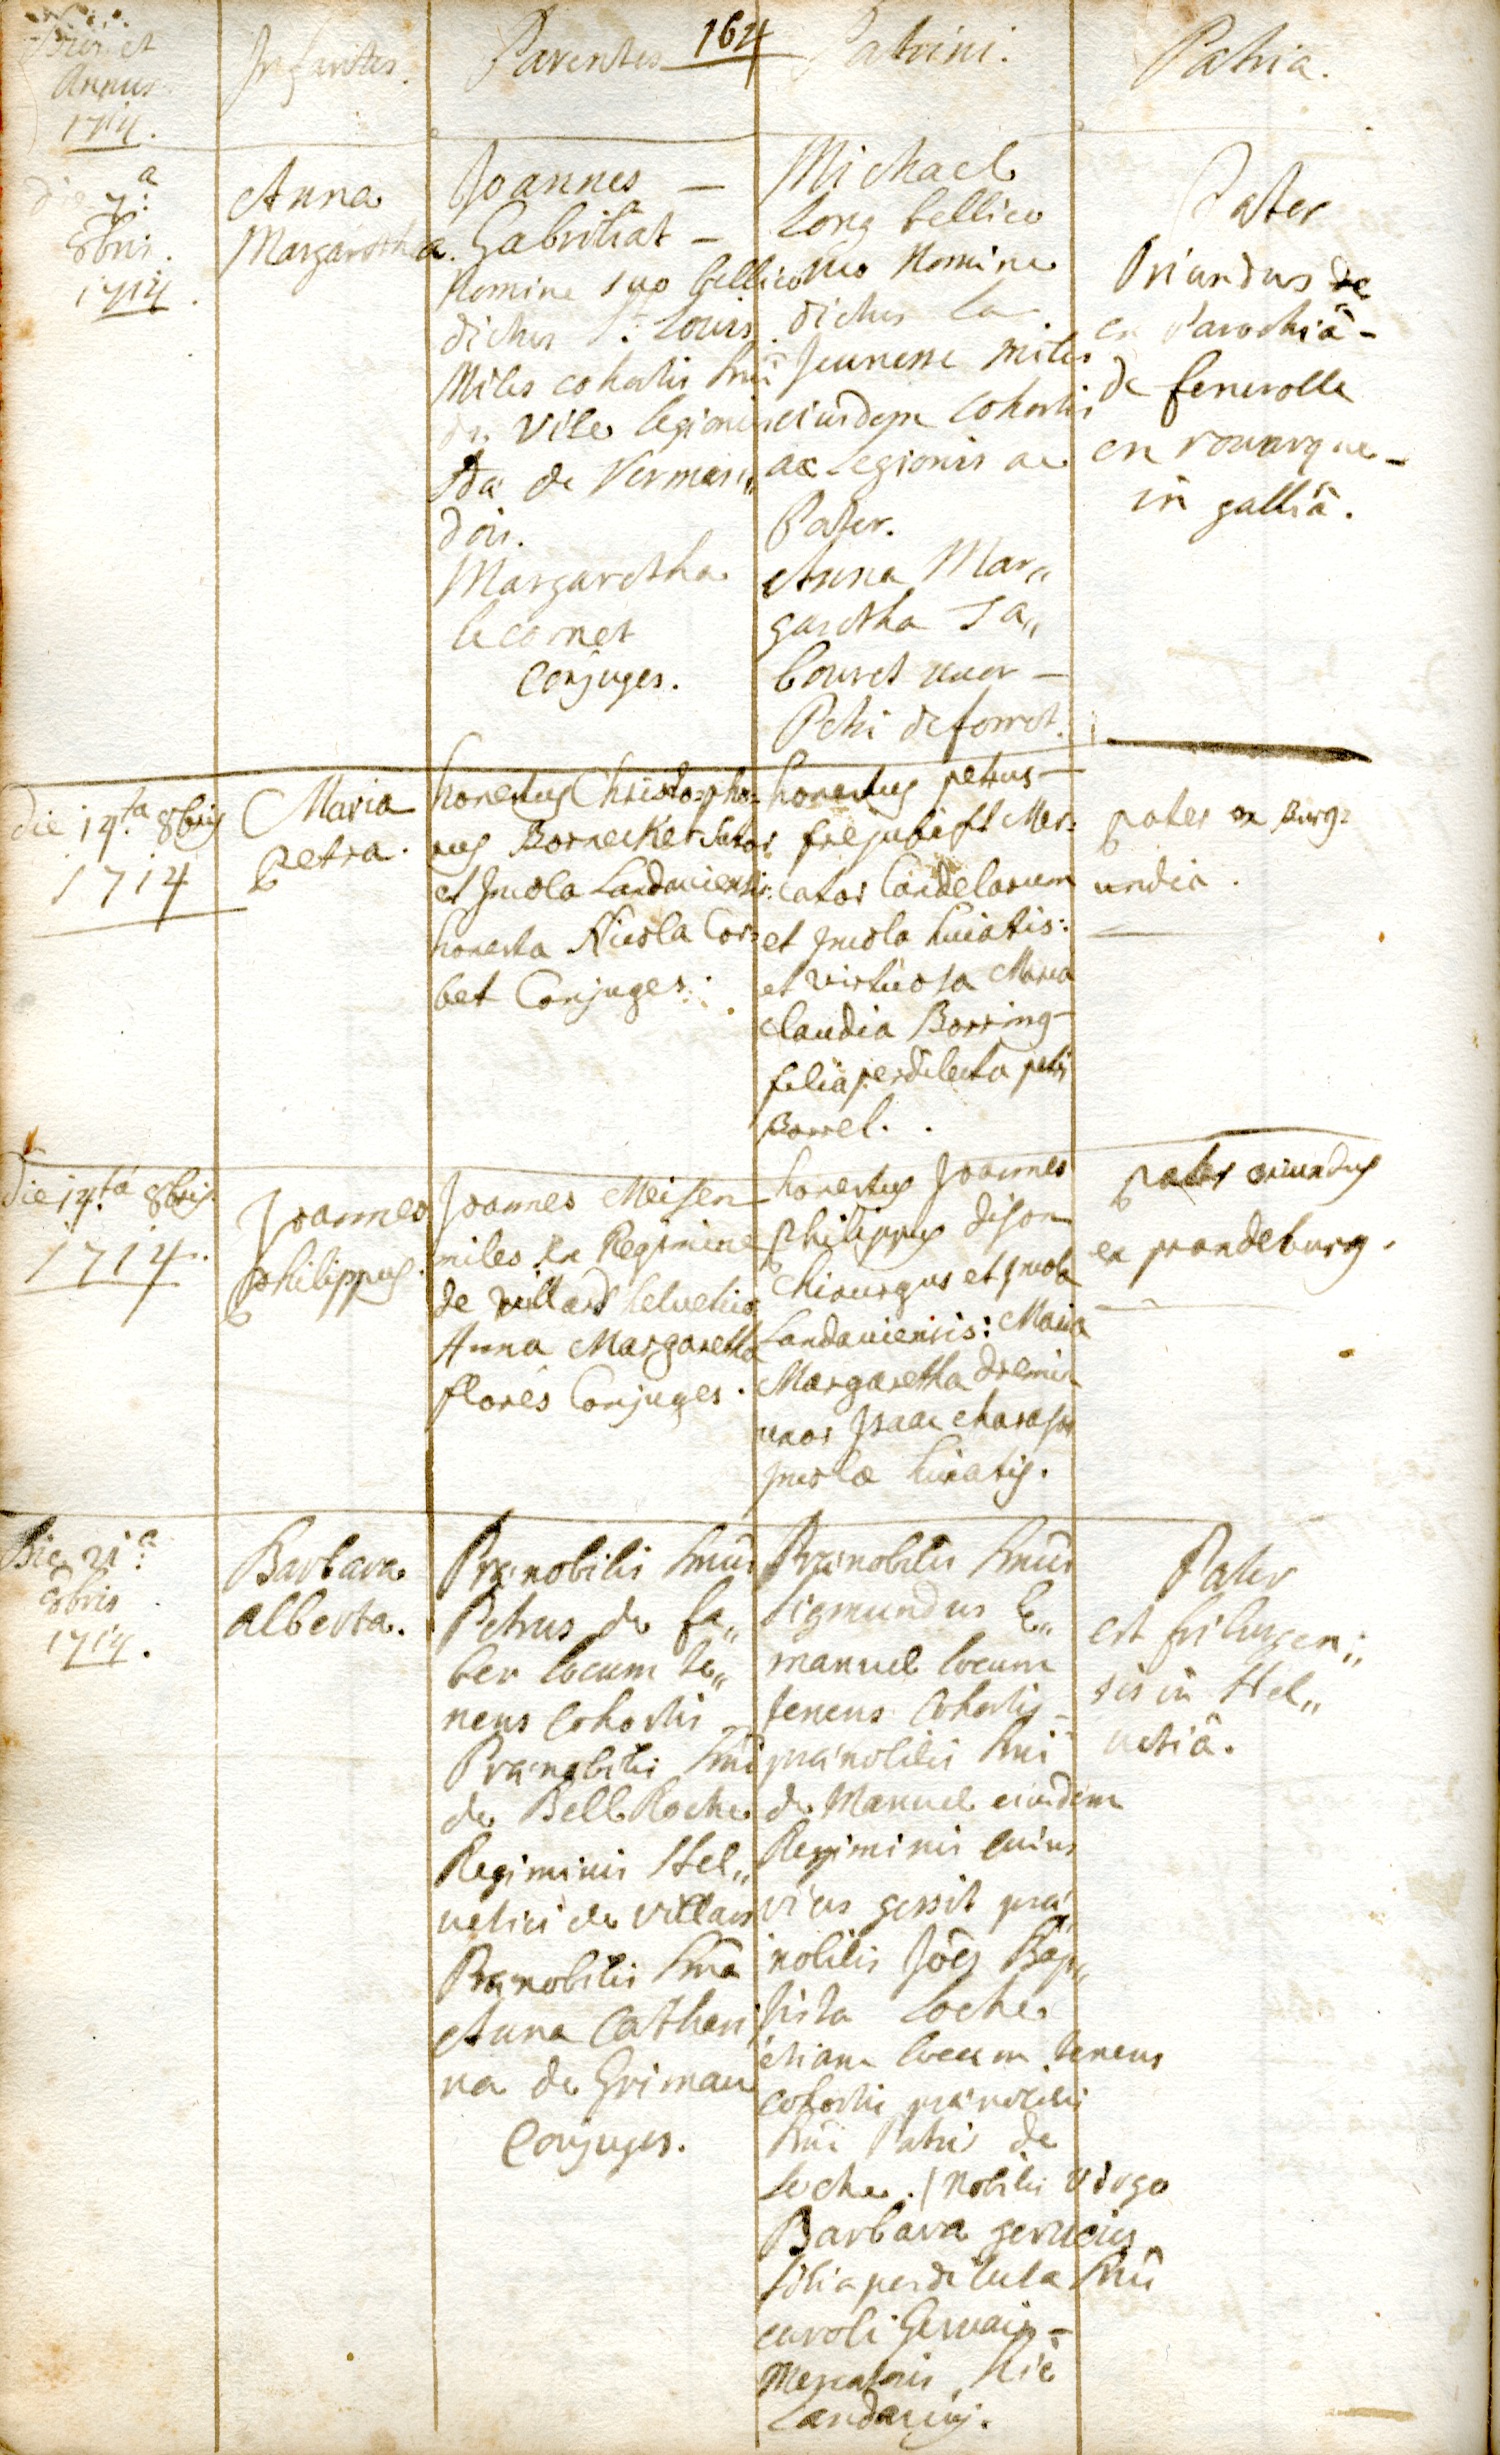 164
Dies et
Annus
1714.
Infantes.
Parentes
Patrini.
Patria.
die 7.a
8bris.
1714.
Anna
Margaretha.
Joannes —
Gabriliat —
Nomine suo bellico
dictus St. Louis
Miles cohortis Dni
de Vile legionis
dɑ̈ de Verman„
dois.
Margaretha
lecornet
Conjuges.
Michael
Long bellico
suo Nomine
dictus La
Jeunesse miles
eiusdem cohortis
ac Legionis ac
Pater.
Anna Mar„
garetha Ta„
bouret uxor —
Petri deforret.
Pater
Oriundus de
ex Parochiâ —
de fenerolle
en rouargue —
in galliâ.
die 14.ta 8bris
1714
Maria
petra.
honestus Christopho=
rus Bornecker sutor
et Incola Landaviensis:
honesta Nicola Cor=
bet Conjuges.
honestus petrus —
frejubift Mer=
cator Candelarum
et Incola huiatis:
et virtuosa Maria
Claudia Borring
filia perdilecta petri
Borrel.
pater ex Burg=
undia.
die 14.ta 8bris
1714.
Joannes
philippus.
Joannes Meisen
miles ex Regimine
de villard helvetico
Anna Margaretha
florés Conjuges.
honestus Joannes
philippus dison
Chirurgus et Incola
Landaviensis: Maria
Margaretha dremin
uxor Isaac charasson
Incolæ huiatis.
pater oriundus
ex prandeburg.
Die 21.a
8bris
1714.
Barbara
Alberta.
Prænobilis Dnus
Petrus de fa„
ber locum te„
nens cohortis
Prænobilis Dni
de Bell Roche
Regiminis Hel„
vetici de villars
Prænobilis Dna
Anna Cathari
na de Griman
Conjuges.
Prænobilis Dnus
Sigmundus E„
manuel locum
tenens Cohortis —
prænobilis Dni
de Manuel eiusdem
Regiminis cuius
vices gessit præ„
nobilis Jöes Bap„
tista Loche
etiam locum tenens
cohortis prænobilis
Dni Patris de
Loche. / Nobilis virgo
Barbara gervaius
filia perdilecta Dni
caroli Gervais —
Mercatoris hic
Landavij.
Pater
est friburgen„
sis in Hel„
vetiâ.